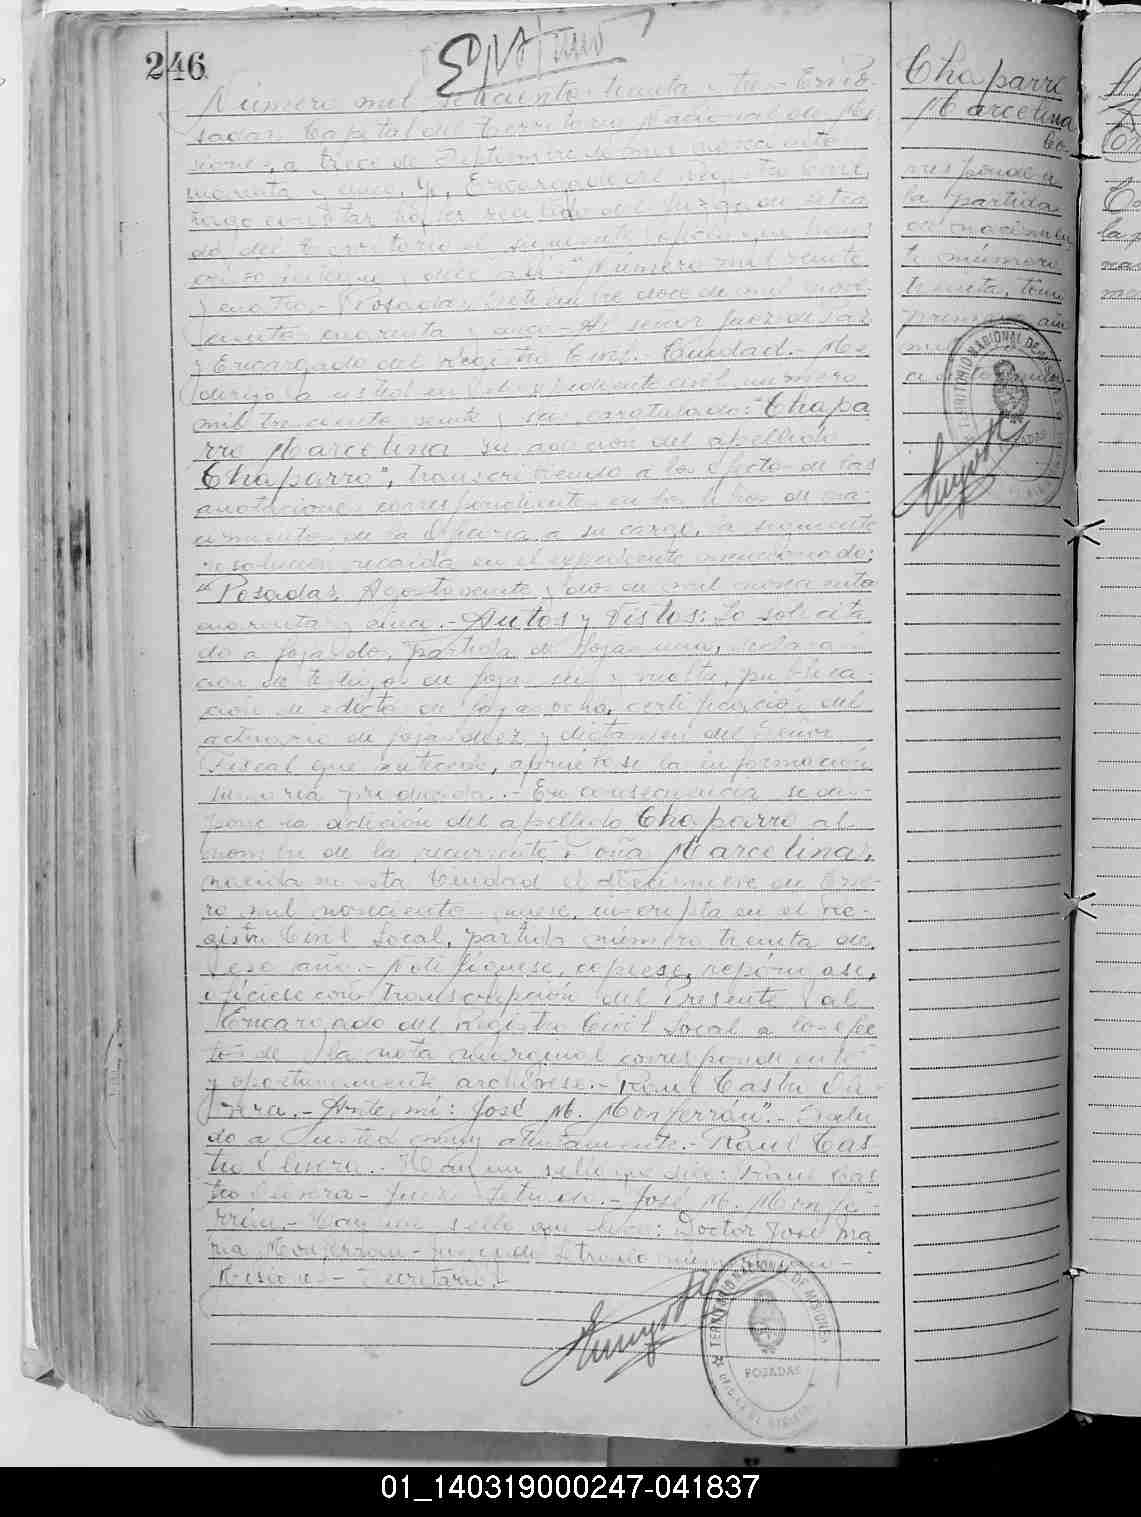 246
Número mil seiscientos treinta y tres - En Po-
sadas, Capital del Territorio Nacional de Mi-
siones, a trece de Septiembre de mil novecientos
cuarenta y cinco, Yo, Encargado del Registro Civil,
hago constar haber recibido del Juzgado Letra-
do del Territorio el siguiente oficio que trans-
cribo íntegro y dice así: "Número mil veinte
y cuatro.- Posadas, Septiembre doce de mil nove-
cientos cuarenta y cinco - Al señor Juez de Paz
y Encargado del Registro Civil. Ciudad.- Me
dirijo a usted en el expediente civil número
mil trescientos veinte y seis caratulado: "Chapa
rro Marcelina su adición del apellido
Chaparro", transcribiendo a los efectos de las
anotaciones correspondientes en los libros de na-
cimientos de la oficina a su cargo, la siguiente
resolución recaída en el expediente mencionado:
"Posadas, Agosto veinte y dos de mil novecientos
cuarenta y cinco.- Autos y Vistos: Lo solicita
do a fojas dos, partida de fojas una, declara-
ción de testigos de fojas seis y vuelta, publica-
ción de edictos de fojas ocho, certificación del
actuario de fojas diez y dictamen del Señor
Fiscal que antecede, apruébase la información
sumaria producida.- En consecuencia se dis-
pone la adición del apellido Chaparro al
nombre de la recurrente, doña Marcelina,
nacida en esta Ciudad el diecinueve de Ene-
ro mil novecientos nueve, inscripta en el Re-
gistro Civil Local, partida número treinta de
ese año.- Notifíquese, cópiese, repóngase,
ofíciese con transcripción del presente al
Encargado del Registro Civil Local a los efec
tos de la nota marginal correspondiente
y oportunamente archívese.- Raul Castro Oli-
vera.- Ante mí: José M. Monferrán".- Salu
do a usted muy atentamente.- Raul Cas
tro Olivera.- Hay un sello que dice: Raul Cas
tro Olivera - Juez Letrado.- José M. Monfe-
rrán.- Hay un sello que dice: Doctor José Ma
ría Monferrán - Juzgado Letrado
Misiones - Secretario.-
Chaparro
Marcelina
Co-
rresponde a
la partida
de nacimien
to número
treinta, tomo
primero año
mil
TERRITORIO NACIONAL DE MISIONES
POSADAS
TERRITORIO NACIONAL DE MISIONES
POSADAS
01_140319000247-041837